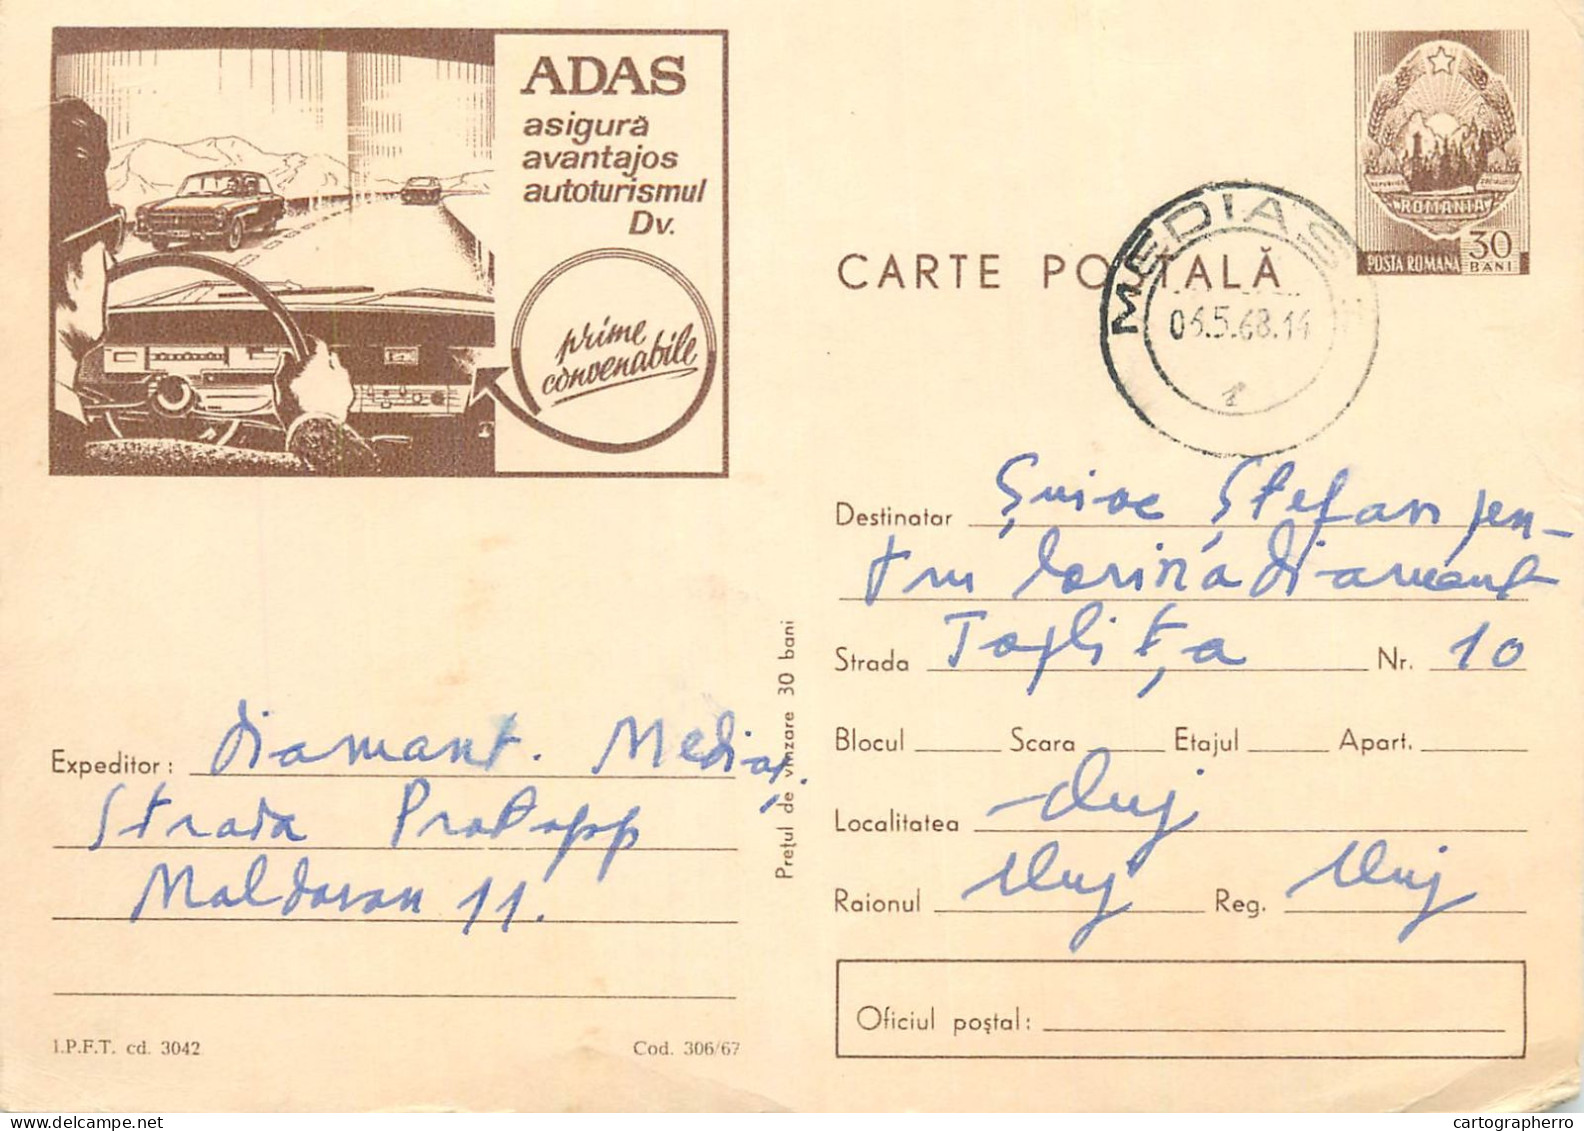 ADAS
asigură
avantajos
autoturismul
Dv.
prime
convenabile
REPUBLICA SOCIALISTA
ROMANIA
POSTA ROMANA 30 BANI
CARTE POȘTALĂ
MEDIAS
5.68.14
1
Destinatar Șuioc Ștefan pen-
tru Corina Diamant
Strada Toplița Nr. 10
Blocul Scara Etajul Apart.
Localitatea Cluj
Raionul Cluj Reg. Cluj
Oficiul poștal:
Expeditor: Diamant. Mediaș,
Strada Protopp
Moldovan 11.
Prețul de vînzare 30 bani
I.P.F.T. cd. 3042
Cod. 306/67
cartographerro